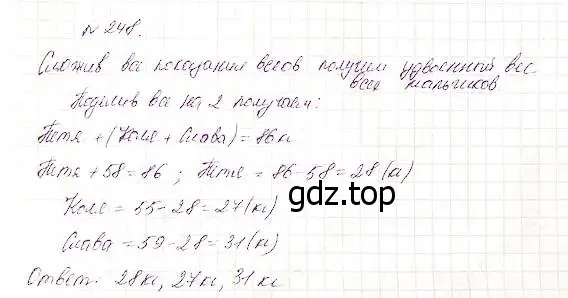 № 248.
Сложив все показания весов получим удвоенный вес
всех мальчиков
Поделив все на 2 получаем:
Петя + (Коля + Слава) = 86 кг
Петя + 58 = 86 ; Петя = 86 - 58 = 28 (кг)
gdz.top
Коля = 55 - 28 = 27 (кг)
Слава = 59 - 28 = 31 (кг)
Ответ: 28 кг, 27 кг, 31 кг